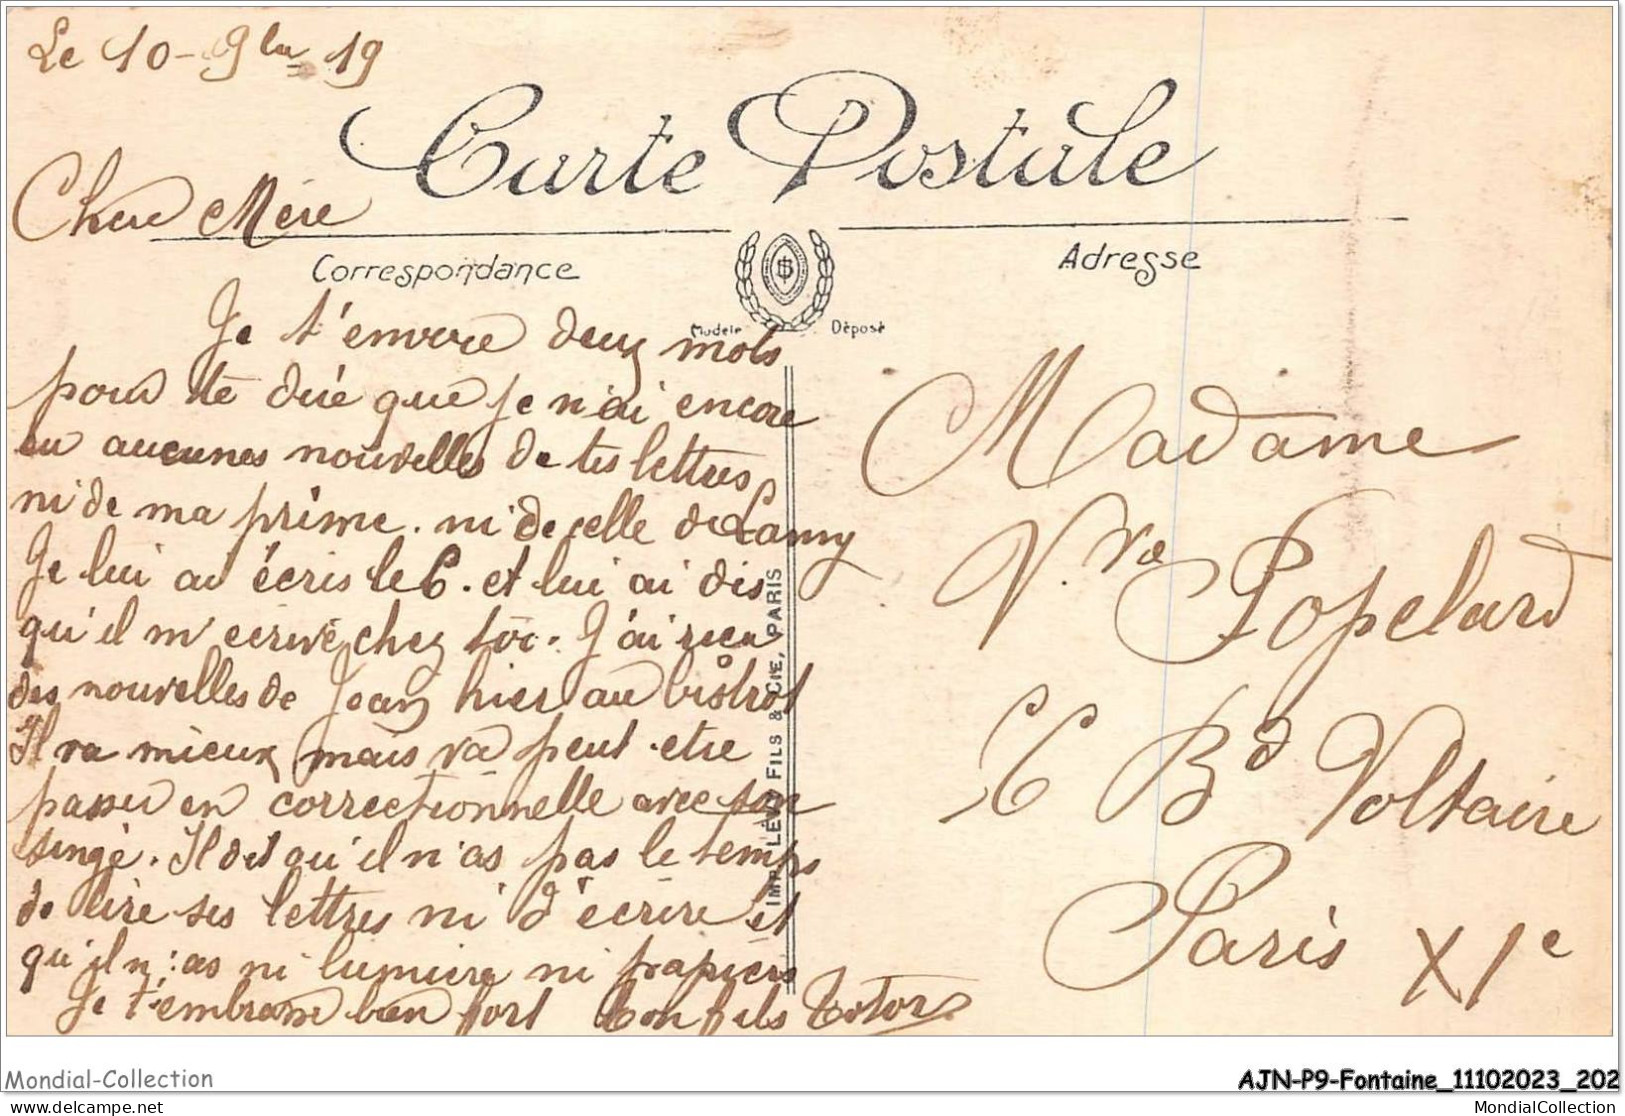 Le 10-9bre 19
Carte Postale
Chere Mère
Correspondance
Adresse
Modèle Déposé
Je t'envoie deux mots
pour te dire que je n'ai encore
eu aucunes nouvelles de tes lettres
ni de ma prime. ni de celle de Lamy
Je lui ai écris le 6. et lui ai dis
qu'il m'ecrive chez toi. J'ai recu
des nouvelles de Jean hier au bistrot
Il va mieux mais va peut.etre
passer en correctionnelle avec son
singe. Il dit qu'il n'as pas le temps
de lire ses lettres ni d'écrire et
qu'il n'as ni lumiere ni papiers
Je t'embrasse bien fort Ton fils Totor
IMP. LÉVY FILS & CIE, PARIS
Madame
Vve Popelard
6 Bd Voltaire
Paris XIe
Mondial-Collection
AJN-P9-Fontaine_11102023_202
https://www.delcampe.net
MondialCollection